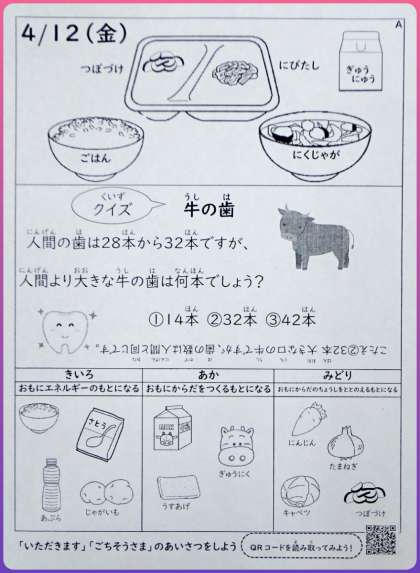 4/12(金)
A
つぼづけ
にびたし
ぎゅう
にゅう
ごはん
にくじゃが
くいず
クイズ
うし は
牛の歯
にんげん は ほん ほん
人間の歯は28本から32本ですが、
にんげん おお うし は なんほん
人間より大きな牛の歯は何本でしょう?
ほん ほん ほん
①14本 ②32本 ③42本
こたえ②32本 大きな口の牛ですが、歯の数は人間と同じです。
きいろ
あか
みどり
おもにエネルギーのもとになる
おもにからだをつくるもとになる
おもにからだのちょうしをととのえるもとになる
さとう
にんじん
たまねぎ
ぎゅうにく
あぶら
じゃがいも
うすあげ
キャベツ
つぼづけ
「いただきます」「ごちそうさま」のあいさつをしよう
QRコードを読み取ってみよう!